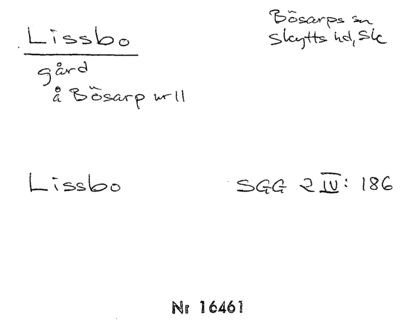 Lissbo
Bösarps sn
Skytts hd, Sk
gård
å Bösarp nr 11
Lissbo
SGG 2 IV: 186
Nr 16461